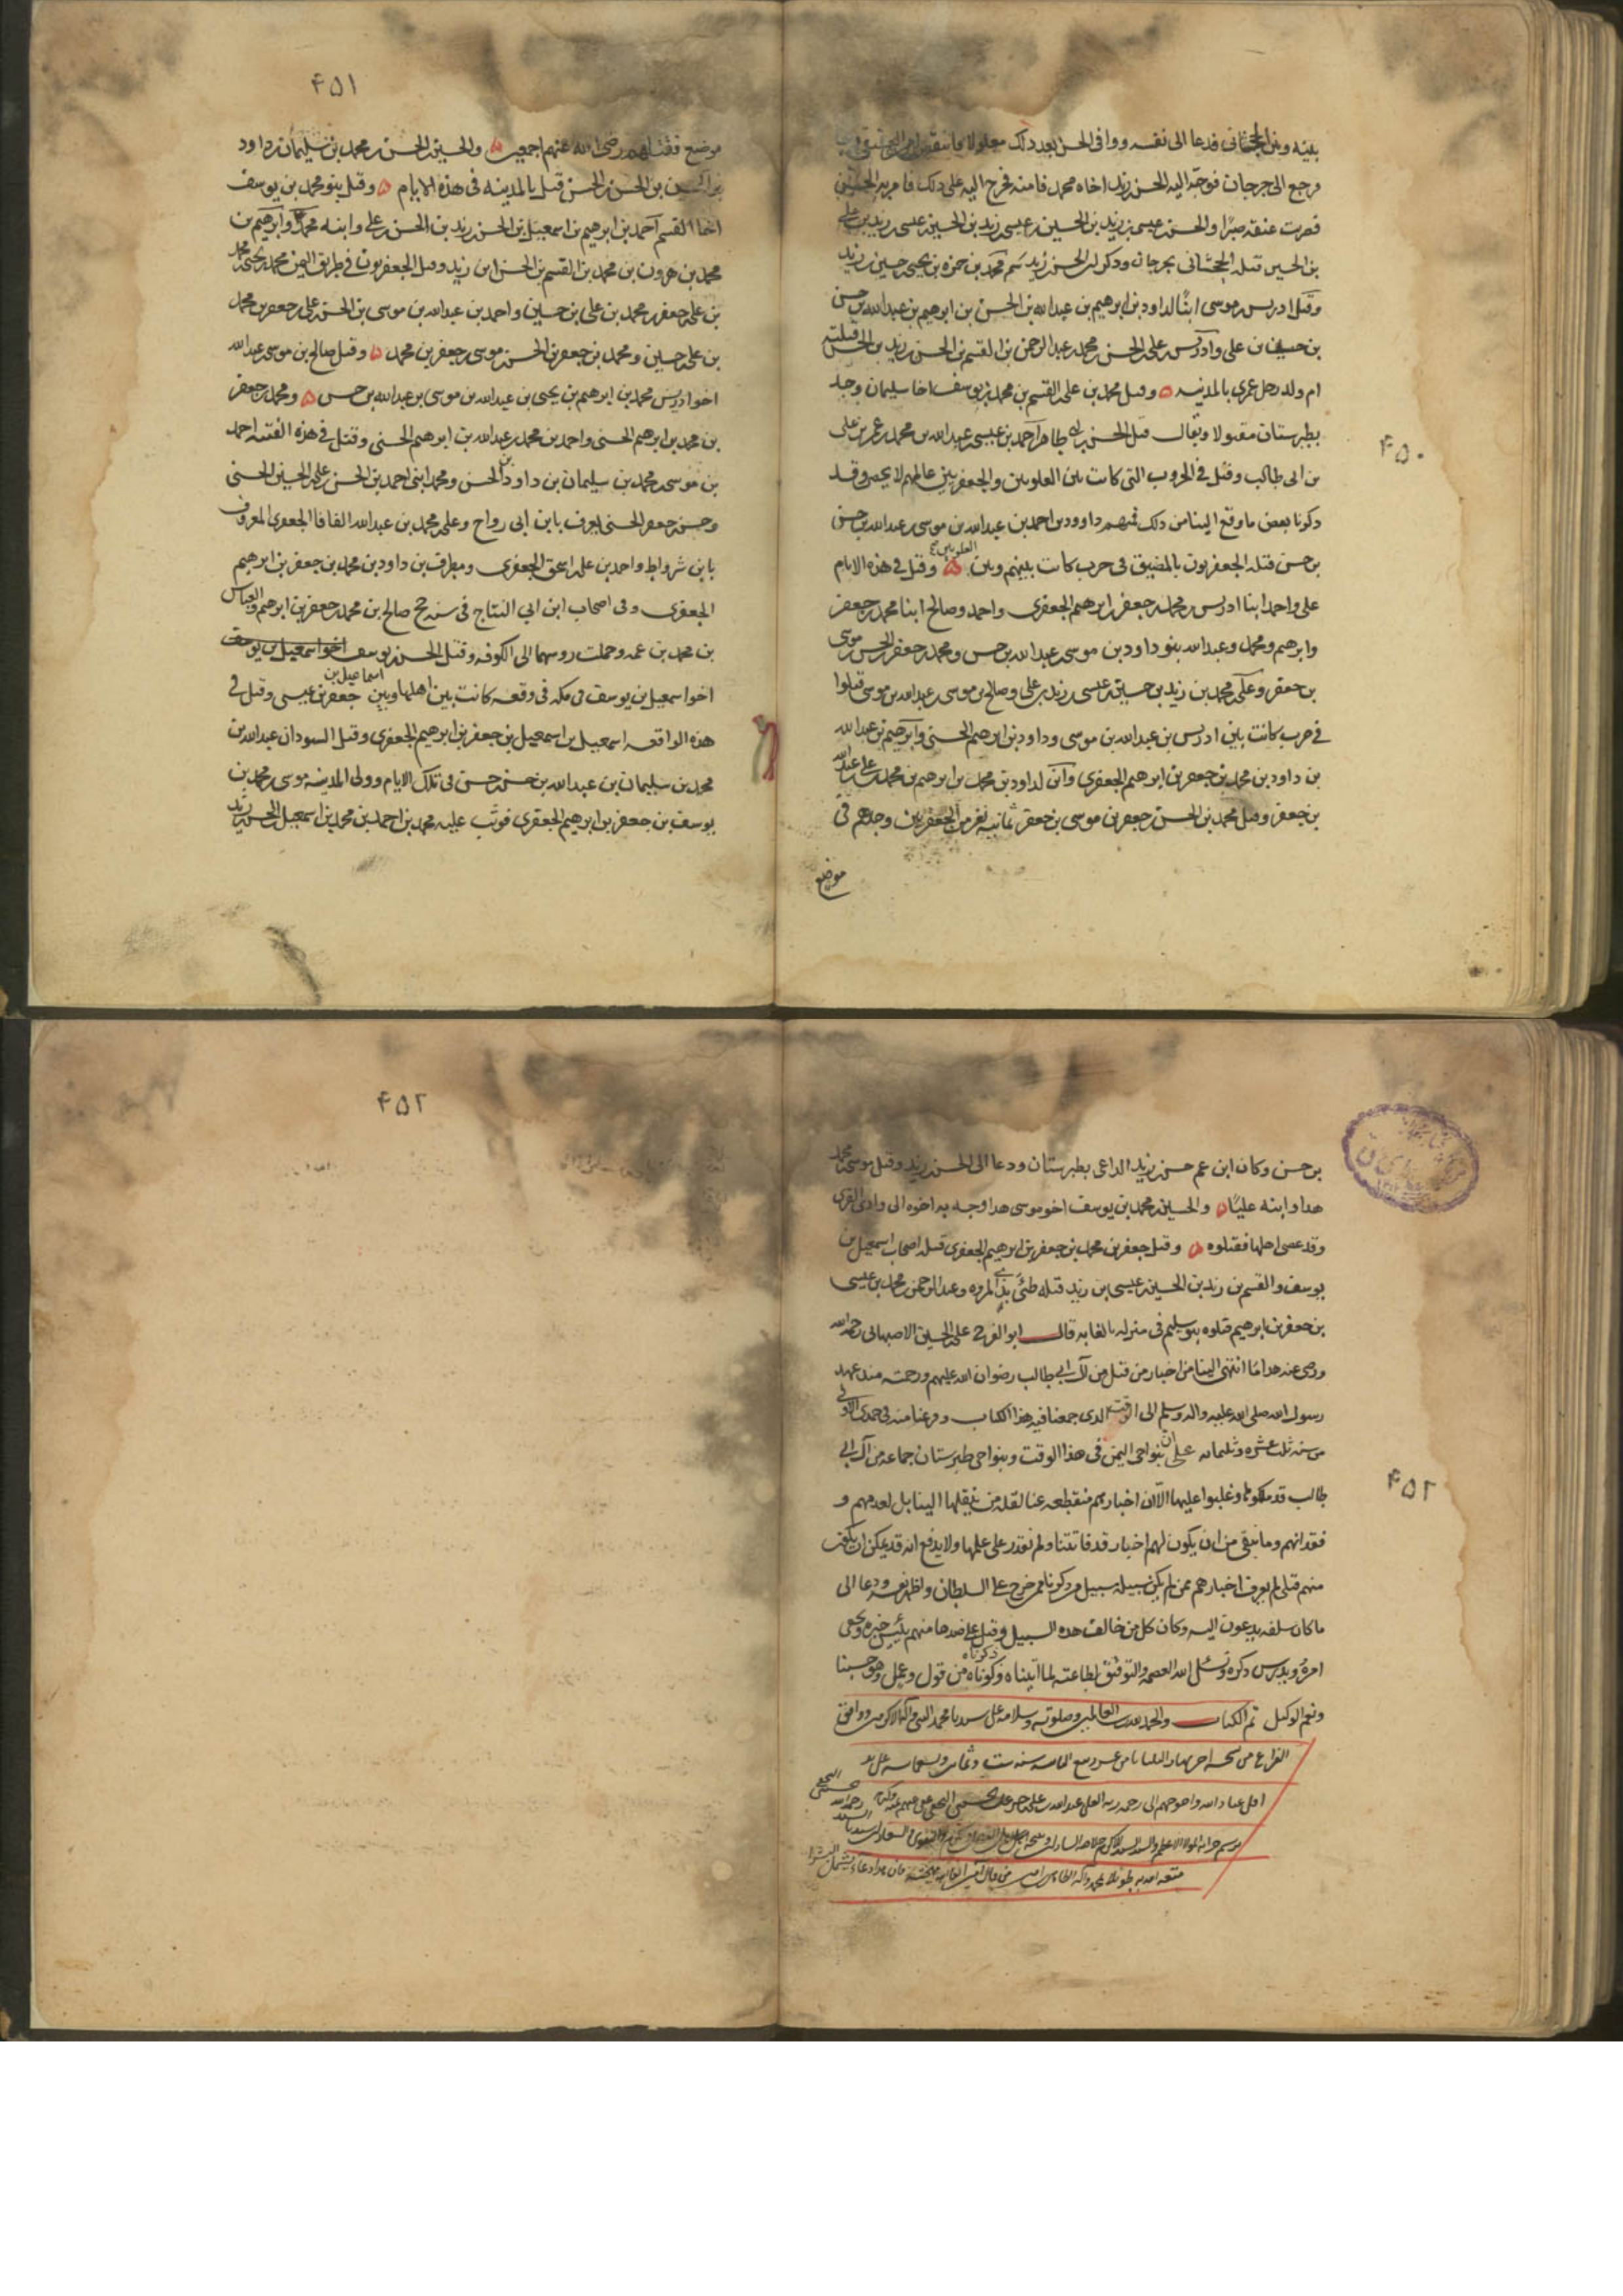 ۴۵۰
بينه وبين الخجستانى فدعا الى نفسه ووافى الحسن بعد ذلك
ورجع الى جرجان فوجه اليه الحسن بن زيد اخاه محمد فامنه فخرج اليه على ذلك فامر به
فضربت عنقه صبرًا والحسن بن عيسى بن زيد بن الحسين بن عيسى بن زيد بن على
بن الحسين قتله الخجستانى بجرجان وذكر ان الحسن بن زيد سم محمد بن حمزه بن يحيى بن حسين بن زيد
وقتل ادريس بن موسى ابنًا لداود بن ابرهيم بن عبد الله بن الحسن بن ابرهيم بن عبد الله بن حسن
بن حسن بن على وادريس بن على بن الحسن بن محمد بن عبد الرحمن بن القسم بن الحسن بن زيد بن الحسن قتلته
ام ولد رجل عمرى بالمدينه ٥ وقتل محمد بن على بن القسم بن محمد بن يوسف اخا سليمان وجد
بطبرستان مقتولا ويقال قتل الحسن بن ابى طاهر احمد بن عيسى بن عبد الله بن محمد بن عمر بن على
بن ابى طالب وقتل فى الحروب التى كانت بين العلويين والجعفريين عالم لا يحصر وقد
ذكرنا بعض ما وقع الينا من ذلك فمنهم داوود بن احمد بن عبد الله بن موسى بن عبد الله بن حسن
بن حسن قتله الجعفريون بالمضيق فى حرب كانت بينهم وبين العلويين ٥ وقتل فى هذه الايام
على واحمد ابنا ادريس بن محمد بن جعفر بن ابرهيم الجعفرى واحمد وصالح ابنا محمد بن جعفر
وابرهيم ومحمد وعبد الله بنو داود بن موسى بن عبد الله بن حسن ومحمد بن جعفر بن الحسن بن موسى
بن جعفر وعلى بن محمد بن زيد بن حسين بن عيسى بن زيد بن على وصالح بن موسى بن عبد الله بن موسى قتلوا
فى حرب كانت بين ادريس بن عبد الله بن موسى وداود بن ابرهيم الحسنى وابرهيم بن عبد الله
بن داود بن محمد بن جعفر بن ابرهيم الجعفرى وابن لداود بن محمد بن ابرهيم بن محمد بن على بن عبد الله
بن جعفر وقتل محمد بن الحسن بن جعفر بن موسى بن جعفر ثمانيه نفر من الجعفريين وجدهم فى
موضع
۴۵۱
موضع فقتلهم رضى الله عنهم اجمعين ٥ والحسين بن الحسن بن محمد بن سليمان بن داود
بن الحسن بن الحسن قتل بالمدينه فى هذه الايام ٥ وقتل بنو محمد بن يوسف
اخا القسم احمد بن ابرهيم بن اسمعيل بن الحسن بن زيد بن الحسن بن على وابنه محمدًا وابرهيم بن
محمد بن هرون بن محمد بن القسم بن الحسن ابن زيد وقتل الجعفريون فى طريق اليمن محمد بن يحيى بن محمد
بن على بن جعفر بن محمد بن على بن حسين واحمد بن عبد الله بن موسى بن الحسن بن على بن جعفر بن محمد
بن على بن حسين ومحمد بن جعفر بن الحسن بن موسى بن جعفر بن محمد ٥ وقتل صالح بن موسى بن عبد الله
اخو ادريس محمد بن ابرهيم بن يحيى بن عبد الله بن موسى بن عبد الله بن حسن ٥ ومحمد بن جعفر
بن محمد بن ابرهيم الحسنى واحمد بن محمد بن عبد الله بن ابرهيم الحسنى وقتل فى هذه الفتنه احمد
بن موسى بن محمد بن سليمان بن داود بن الحسن ومحمد ابنى احمد بن الحسن بن على بن الحسين الحسنى
وحسن بن جعفر الحسنى يعرف بابن ابى رواح وعلى بن محمد بن عبد الله الفافا الجعفرى المعروف
بابن شرواط واحمد بن على بن اسحق الجعفرى ومطرف بن داود بن محمد بن جعفر بن ابرهيم
الجعفرى وفى اصحاب ابن ابى الساج فى سنه حج صالح بن محمد بن جعفر بن ابرهيم والعباس
بن محمد بن عمه وحملت روسهما الى الكوفه وقتل الحسن بن يوسف اخو اسمعيل بن يوسف
اخو اسمعيل بن يوسف فى مكه فى وقعه كانت بين اهلها وبين اسماعيل بن جعفر بن عيسى وقتل فى
هذه الواقعه اسمعيل بن اسمعيل بن جعفر بن ابرهيم الجعفرى وقتل السودان عبد الله بن
محمد بن سليمان بن عبد الله بن حسن بن حسن فى تلك الايام وولى المدينه موسى بن محمد بن
يوسف بن جعفر بن ابرهيم الجعفرى فوثب عليه محمد بن احمد بن محمد بن اسمعيل بن الحسن بن زيد
۴۵۲
بن حسن وكان ابن عم حسن بن زيد الداعى بطبرستان ودعا الى الحسن بن زيد وقتل موسى بن محمد
هذا وابنه عليًا ٥ والحسين بن محمد بن يوسف اخو موسى هذا وجه به اخوه الى وادى القرى
وقد عصى اهلها فقتلوه ٥ وقتل جعفر بن محمد بن جعفر بن ابرهيم الجعفرى قتله اصحاب اسمعيل بن
يوسف والقسم بن زيد بن الحسين بن عيسى ابن زيد قتله طئ بذى المروه وعبد الرحمن بن محمد بن عيسى
بن جعفر بن ابرهيم قتلوه بنو سليم فى منزله بالغابه قال ابو الفرج على بن الحسين الاصبهانى رحمه الله
ورضى عنه هذا ما انتهى الينا من اخبار من قتل من آل ابى طالب رضوان الله عليهم ورحمته منذ عهد
رسول الله صلى الله عليه واله وسلم الى الوقت الذى جمعنا فيه هذا الكتاب وفرغنا منه فى جمدى الاولى
من سنه ثلث عشره وثلثمائه على ان بنواحى اليمن فى هذا الوقت وبنواحى طبرستان جماعه من آل ابى
طالب قد ملكوها وغلبوا عليها الا ان اخبارهم منقطعه عنا لقله من ينقلها الينا بل لعدمهم و
فقدانهم وما نبقى من ان يكون لهم اخبار قد فاتتنا ولم نقدر على علمها ولا يدفع انه قد يمكن ان يكون
منهم قتلى لم يعرف اخبارهم ممن لم يكن سبيله سبيل من ذكرنا ممن خرج على السلطان واظهر نفسه ودعا الى
ما كان سلفه يدعون اليه وكان كل من خالف هذه السبيل وقتل على ضدها منهم يئيس خبره ويخفى
امره ويدرس ذكره ونسئل الله العصمه والتوفيق لطاعته لما اتيناه وذكرناه من قول وعمل وهو حسبنا
ونعم الوكيل تم الكتاب والحمد لله رب العالمين وصلوته وسلامه على سيدنا محمد النبى وآله الاكرمين ووافق
الفراغ من نسخه اخر نهار الثلثا ثامن عشر ربيع الثانى سنه ست وثمانين وتسعمائه على يد
اقل عباد الله واحوجهم الى رحمه ربه العلى عبد الله بن على
۴۵۲